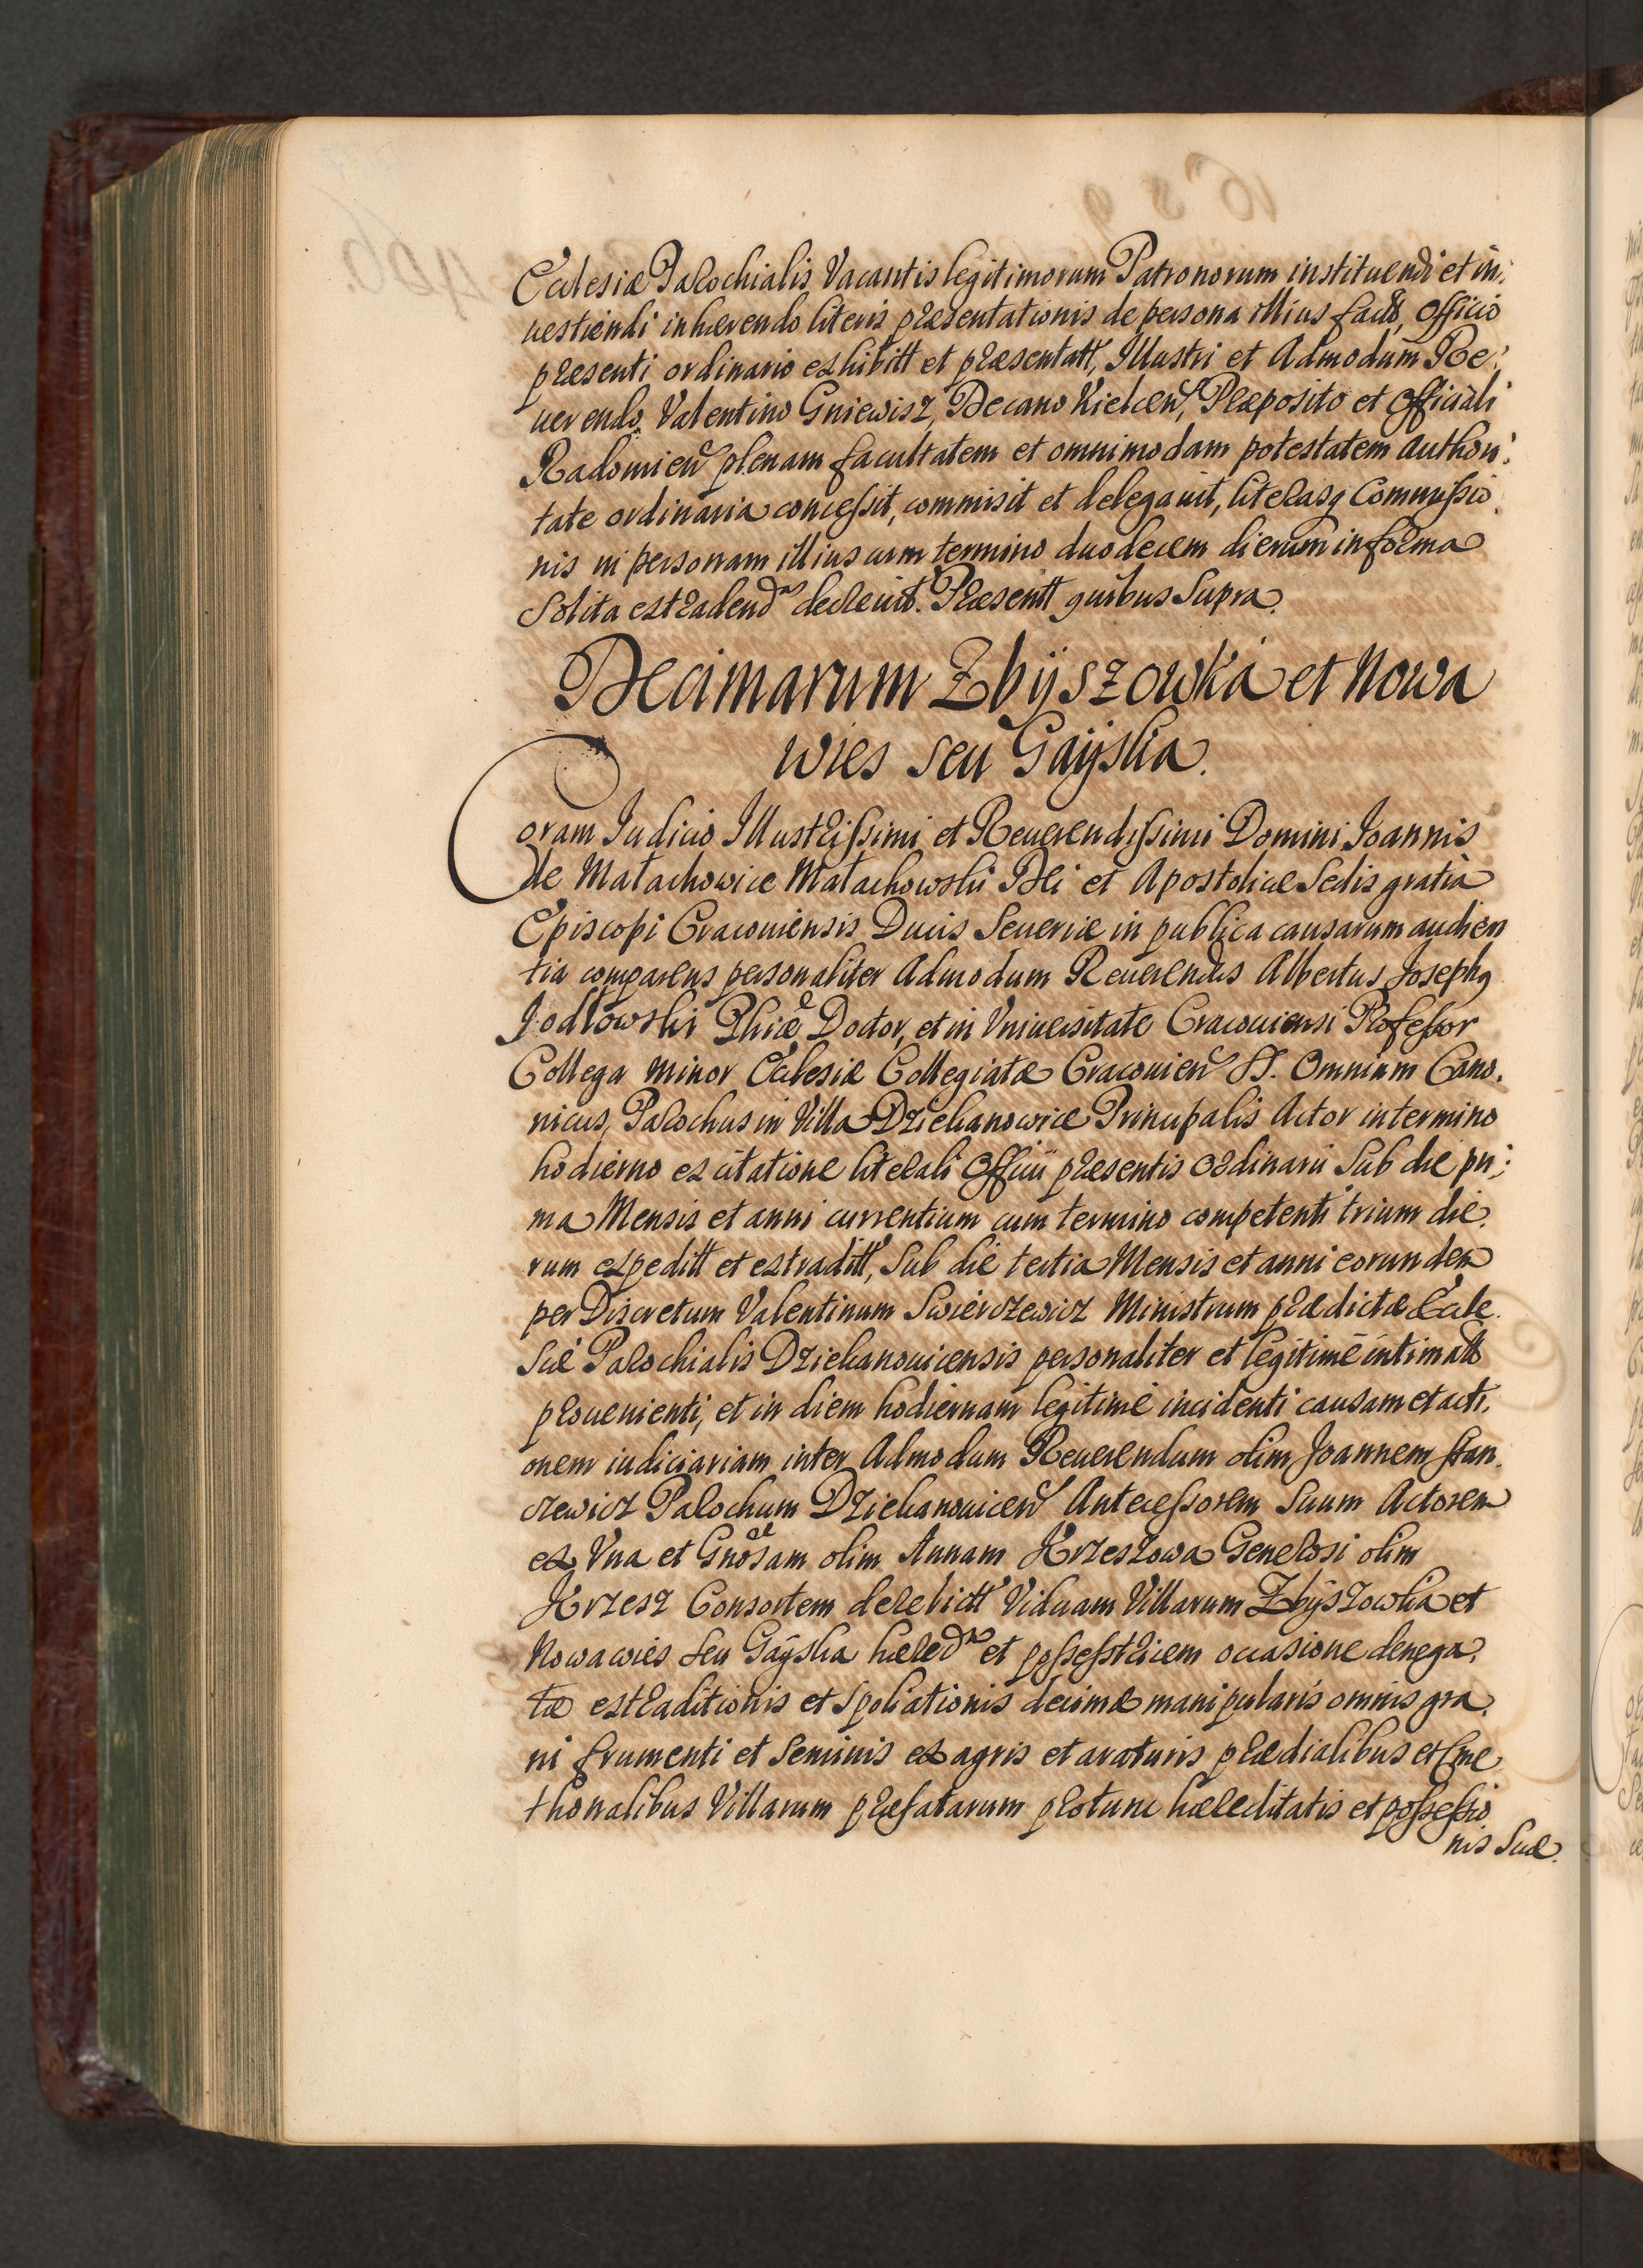 Ecclesiæ Parochialis Vacantis legitimorum Patronorum instituendi et in:
uestiendi inhærendo literis præsentationis de persona illius factis, Officio
præsenti ordinario exhibitt et præsentatt, Illustri et Admodum Re:
uerendo Valentino Gniewisz, Decano Kielcen, Præposito et Officiali
Radomien plenam facultatem et omnimodam potestatem Authori:
tate ordinaria concessit, commisit et delegauit, literasq Commissio:
nis in personam illius cum termino duodecem dierum in forma
Solita extradend decreuit. Præsentt quibus Supra.
Decimarum Zbijszowka et Nowa
wies seu Gaijska.
Coram Judicio Illustrissimi et Reuerendissimi Domini Joannis
de Małachowice Małachowski Dei et Apostolicæ Sedis gratia
Episcopi Cracouiensis Ducis Seueriæ in publica causarum audien
tia comparens personaliter Admodum Reuerendus Albertus Josephq
Jodłowski Phiæ Doctor, et in Vniuersitate Cracouiensi Professor
Collega Minor Ecclesiæ Collegiatæ Cracouien SS. Omnium Cano.
nicus, Parochus in Villa Dziekanowice Principalis Actor in termino
hodierno ex citatione literali Officii præsentis Ordinarii Sub die pri:
ma Mensis et anni currentium cum termino competenti trium die.
rum expeditt et extraditt, Sub die tertia Mensis et anni eorundem
per Discretum Valentinum Swierczewicz Ministrum prædictæ Eccle.
siæ Parochialis Dziekanouicensis personaliter et legitimè intimatt
prouenienti, et in diem hodiernam legitimè incidenti causam et acti.
onem iudiciariam inter Admodum Reuerendum olim Joannem Stan.
czewicz Parochum Dziekanouicen Antecessorem Suum Actorem
ex Vna et Gnosam olim Annam Krzeszowa Generosi olim
Krzesz Consortem derelictt Viduam Villarum Zbyszowka et
Nowawies seu Gaÿska hæred et possesstricem occasione denega.
tæ extraditionis et spoliationis decimæ manipularis omnis gra.
ni frumenti et Seminis ex agris et araturis prædialibus et Cme
thonalibus Villarum præfatarum protunc hæreditatis et possessio
nis Suæ.